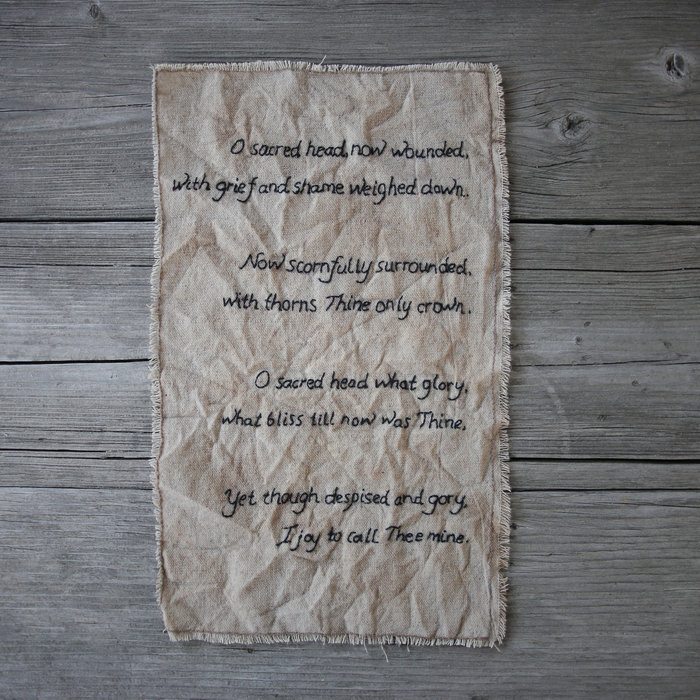 O sacred head, now wounded,
with grief and shame weighed down.
Now scornfully surrounded,
with thorns Thine only crown.
O sacred head what glory,
what bliss till now was Thine,
Yet though despised and gory,
I joy to call Thee mine.